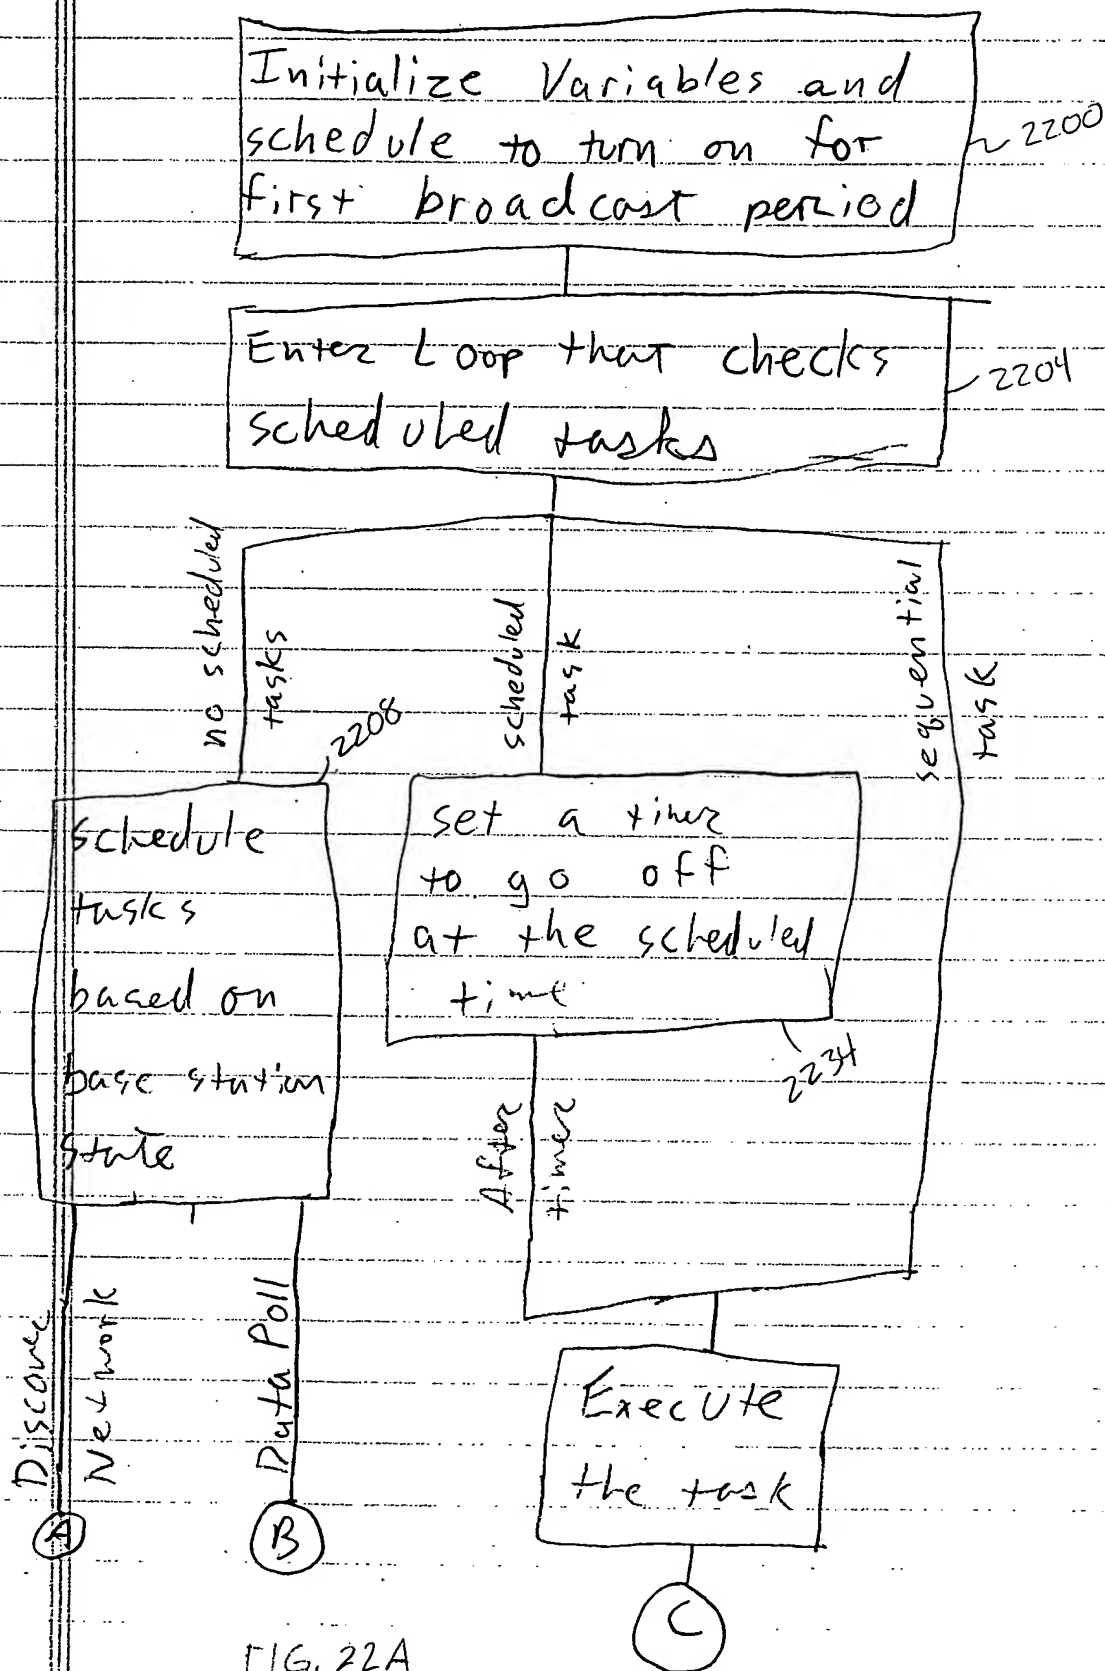 Initialize Variables and
schedule to turn on for
first broadcast period
2200
Enter Loop that checks
scheduled tasks
2204
no scheduled
tasks
scheduled
task
sequential
task
2208
schedule
tasks
based on
base station
state
set a timer
to go off
at the scheduled
time
2234
After
timer
Discover
Network
Data Poll
Execute
the task
A
B
C
FIG. 22A